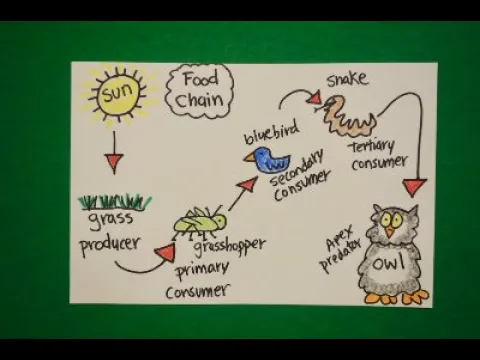 sun
Food
Chain
grass
producer
grasshopper
primary
Consumer
bluebird
secondary
Consumer
snake
tertiary
consumer
Apex
predator
owl